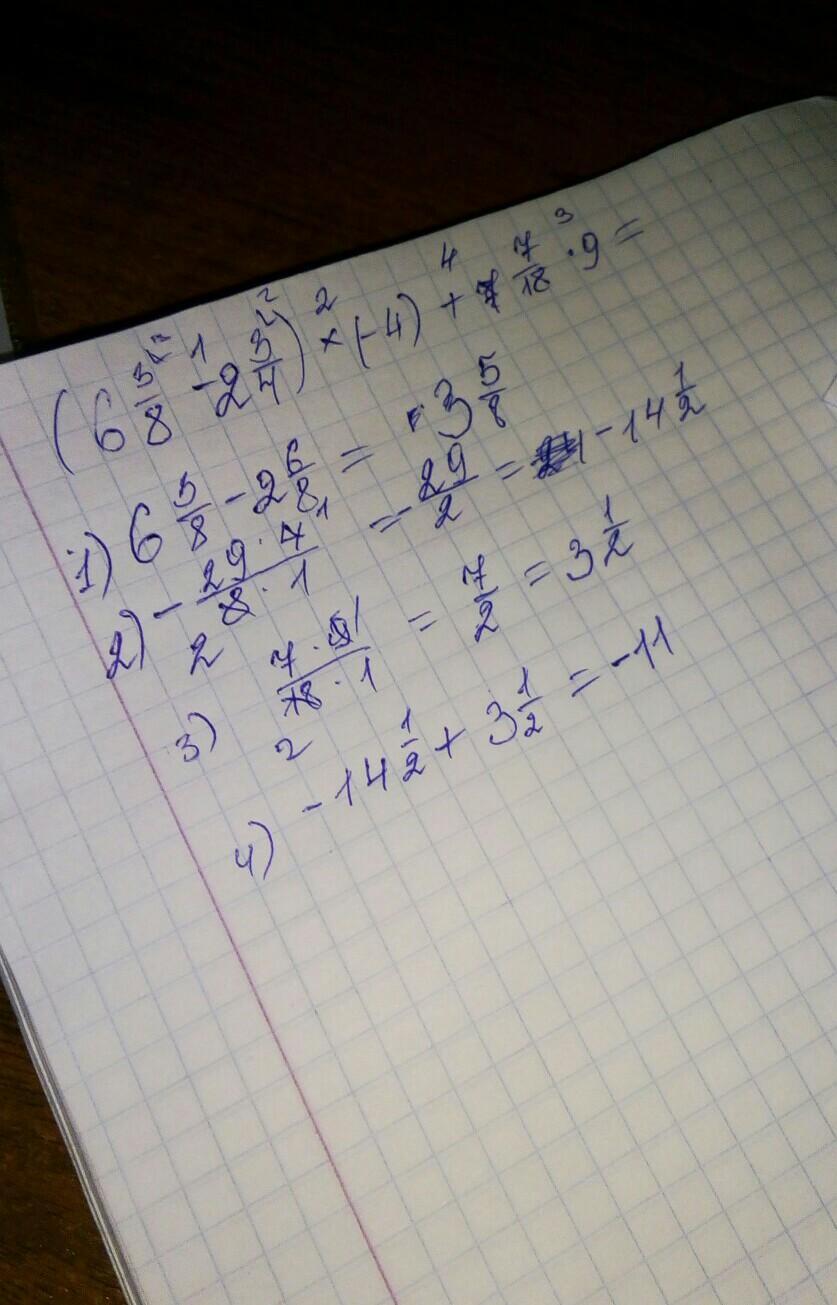 (6 5/8 - 2 3/4) × (-4) + 7/18 · 9 =
1) 6 5/8 - 2 6/8 = 3 5/8
2) - 29 · 4 / 8 · 1 = - 29/2 = - 14 1/2
3) 7 · 9 / 18 · 1 = 7/2 = 3 1/2
4) - 14 1/2 + 3 1/2 = - 11